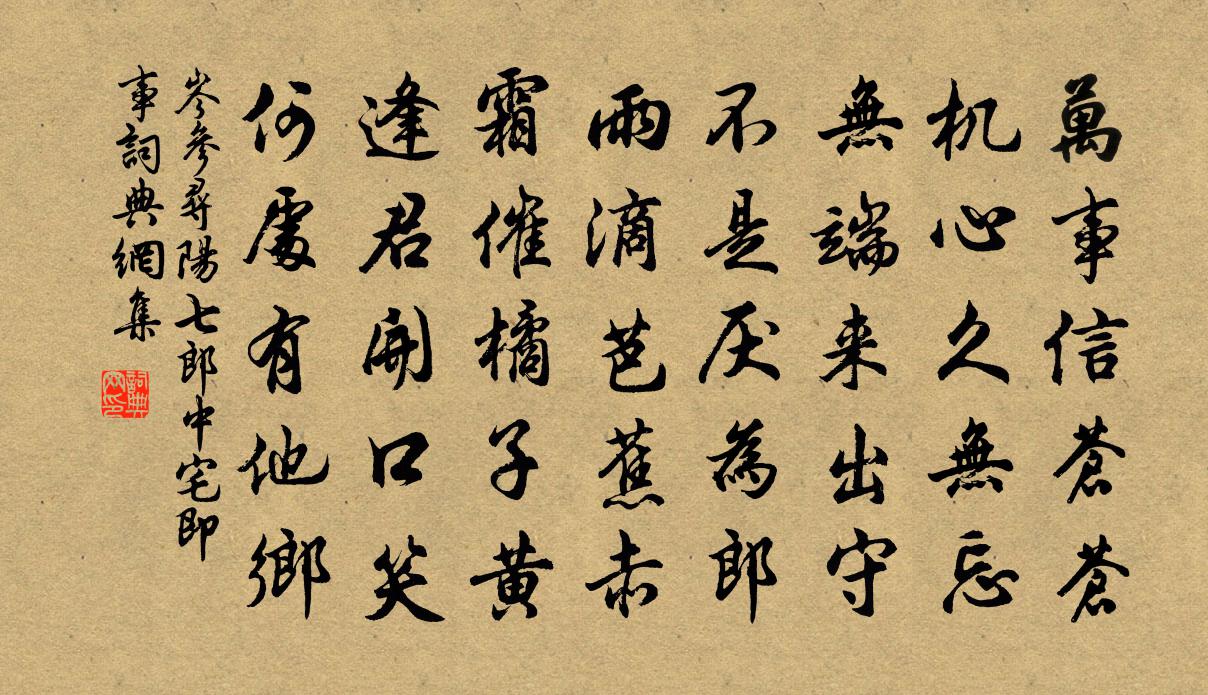 萬事信蒼蒼
机心久無忘
無端来出守
不是厌為郎
雨滴芭蕉赤
霜催橘子黄
逢君開口笑
何處有他鄉
岑參尋陽七郎中宅即
事詞典網集
詞典网印